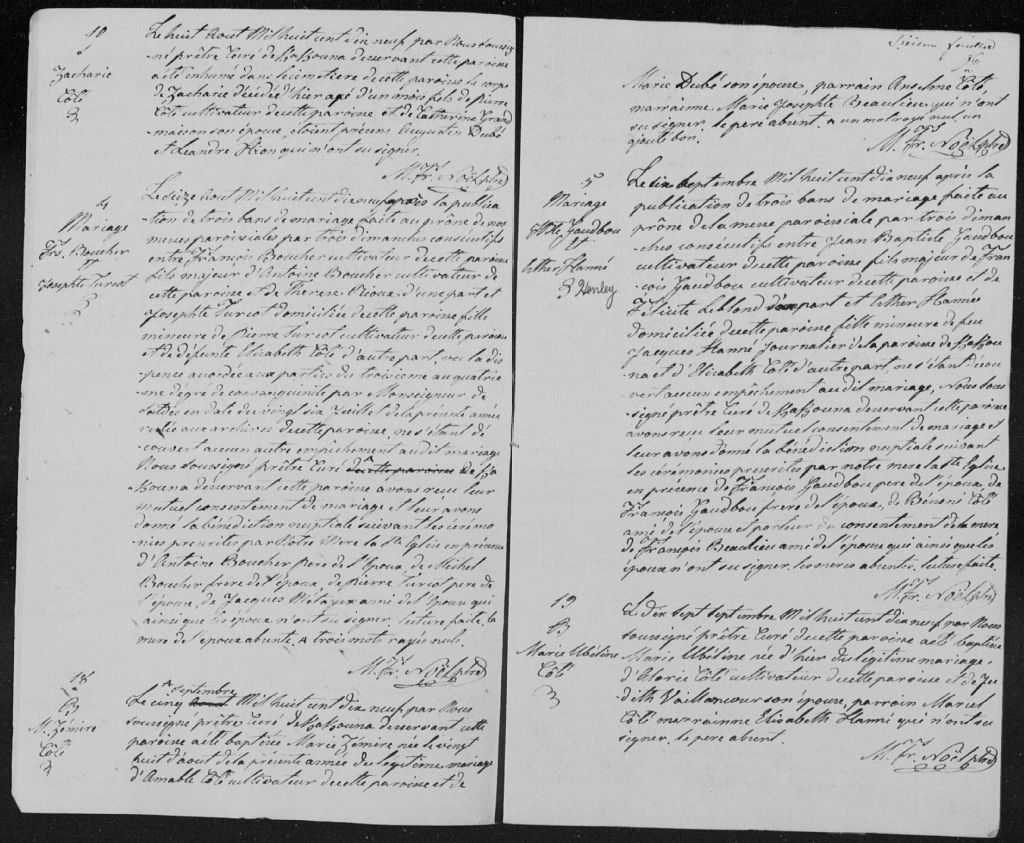 10
S
Zacharie
Coté
3
Le huit Aout Mil huit cent dix neuf par Nous Soussig
né prêtre Curé de KaKouna desservant cette paroisse
a été inhumé dans le cimetiere de cette paroisse le corps
de Zacharie décédé d'hier agé d'un mois fils de pierre
Coté cultivateur de cette paroisse et de Catherine Grand
maison son épouse, étoient présens Augustin Dubé
et Leandre qui n'ont su signer.
M. Fr. Noël ptre
4
Mariage
Frs. Boucher
et
Josephte Turcot
3
Le seize Aout Mil huit cent dix neuf après la publica
tion de trois bans de mariage faite au prône de nos
messes paroissiales par trois dimanches consécutifs
entre François Boucher cultivateur de cette paroisse
fils majeur d'Antoine Boucher cultivateur de
cette paroisse et de Therese Rioux d'une part et
Josephte Turcot domiciliée de cette paroisse fille
mineure de Pierre Turcot cultivateur de cette paroisse
et de defunte Elizabeth Coté d'autre part, vu la dis
pense accordée aux parties du troisieme au quatrie
me dégré de consanguinité par Monseigneur de
en date du vingt six Juillet de la présente année
restée aux archives de cette paroisse, ne s'étant dé
couvert aucun autre empêchement au dit mariage
Nous soussigné prêtre Curé de cette paroisse de Ka
Kouna desservant cette paroisse avons recu leur
mutuel consentement de mariage et leur avons
donné la bénédiction nuptiale suivant les cérémo
nies prescrites par Notre Mere la Ste Eglise en présence
d'Antoine Boucher pere de l'époux, de Michel
Boucher frere de l'époux, de pierre Turcot pere de
l'épouse, de Jacques Métayer ami de l'époux qui
ainsi que les époux n'ont su signer, lecture faite. la
mere de l'épouse absente. trois mots rayés nuls.
M. Fr. Noël ptre
18
B
M. Zémire
Coté
3
septembre
Le cinq Aout Mil huit cent dix neuf par Nous
soussigné prêtre Curé de KaKouna desservant cette
paroisse a été baptisée Marie Zémire née le vingt
huit d'aout de la présente année du légitime mariage
d'Amable Coté cultivateur de cette paroisse et de
Sixieme feuillet
Marie Dubé son épouse, parrain Anselme Coté,
marrainne Marie Josephte Beaulieu qui n'ont
su signer. le pere absent. un mot rayé nul, un
ajouté bon.
M. Fr. Noël ptre
5
Mariage
J Bte Gaudbou
et
Esther Hanné
3 Henley
Le six Septembre Mil huit cent dix neuf après la
publication de trois bans de mariage faite au
prône de la messe paroissiale par trois diman
ches consécutifs entre Jean Baptiste Gaudbou
cultivateur de cette paroisse fils majeur de Fran
cois Gaudbou cultivateur de cette paroisse et de
Felicité Leblond d'une part et Esther Hannée
domiciliée de cette paroisse fille mineure de feu
Jacques Hanné Journalier de la paroisse de KaKou
na et d'Elizabeth Coté d'autre part, ne s'étant décou
vert aucun empêchement au dit mariage, Nous sous
signé prêtre Curé de KaKouna desservant cette paroisse
avons reçu leur mutuel consentement de mariage et
leur avons donné la bénédiction nuptiale suivant
les cérémonies prescrites par notre mere la Ste Eglise
en présence de François Gaudbou pere de l'époux, de
François Gaudbou frere de l'époux, de Bénoni Coté
ami de l'époux et porteur du consentement de la mere
de François Beaulieu ami de l'époux qui ainsi que les
époux n'ont su signer. les meres absentes. lecture faite.
M. Fr. Noël ptre
19
B
Marie Ubéline
Coté
3
Le dix sept septembre Mil huit cent dix neuf par Nous
soussigné prêtre Curé de cette paroisse a été baptisée
Marie Ubéline née d'hier du légitime mariage,
d'Alorie Coté cultivateur de cette paroisse et de Ju
dith Vaillancour son épouse, parrain Marcel
Coté marrainne Elisabeth Hanné qui n'ont su
signer. le pere absent.
M. Fr. Noël ptre